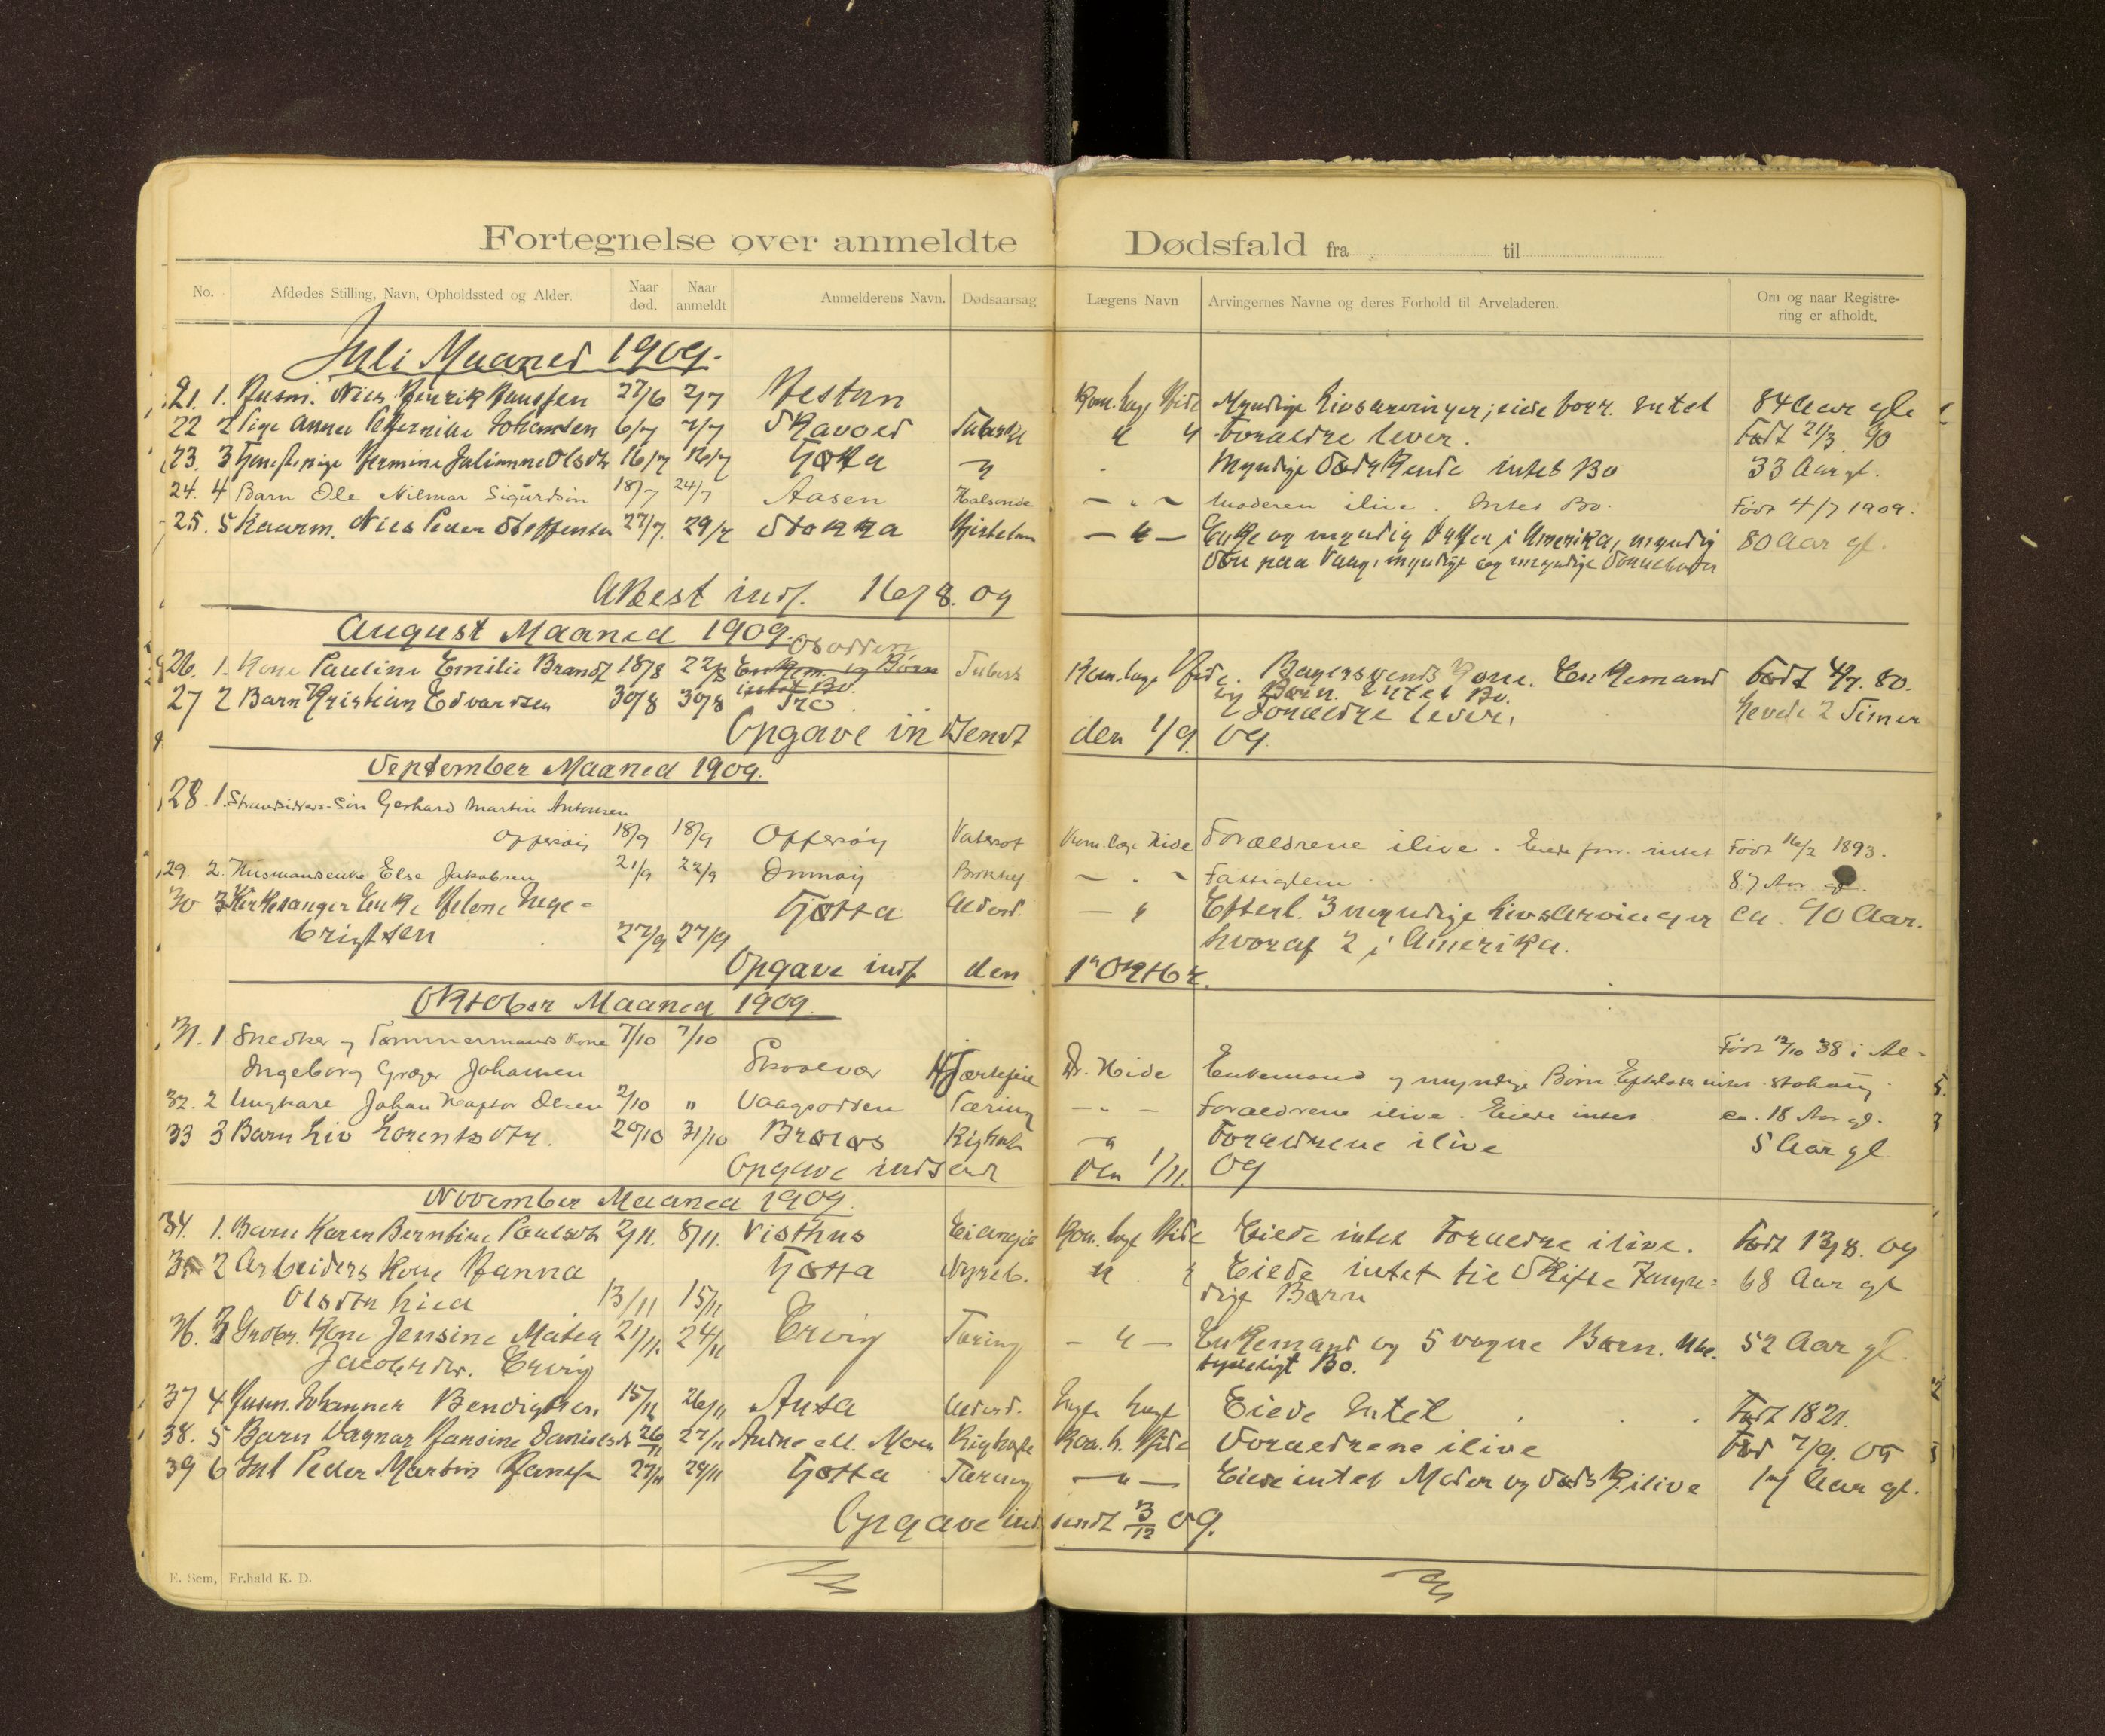 Fortegnelse over anmeldte Dødsfald fra til
No. Afdødes Stilling, Navn, Opholdssted og Alder. Naar død. Naar anmeldt Anmelderens Navn. Dødsaarsag Lægens Navn Arvingernes Navne og deres Forhold til Arveladeren. Om og naar Registrering er afholdt.
Juli Maaned 1909.
21. 1. Husm. Nils Henrik Hanssen 27/6 2/7 Kom. læge Hide Myndige Livsarvinger; eide forr. Intet 84 Aar gle
22 2 Pige Anna Johansen 6/7 7/7 Tuberkl " " Foraeldre lever. Født 21/3 90
23. 3 Tjenestepige Hermine Julianne Olsdtr 16/7 16/7 Gøtta " Myndige Sødskende intet Bo 33 Aar gl.
24. 4 Barn Ole Hilmar Sigurdsen 18/7 24/7 Aasen Moderen ilive. Intet Bo. Født 4/7 1909.
25. 5 Kaarm. Nils Peder Steffensen 27/7. 29/7 Stokka - " - Enke og myndig Datter i Amerika, myndig 80 Aar gl.
Søn paa Vaag, myndige og umyndige
Attest inds. 16/8. 09
August Maaned 1909.
Osodden
26. 1. Kone Pauline Emilie Brandt 18/8 22/8 Enkem. og Børn Tuberk Kom. læge Hide. Bagersvends Kone. Enkemand Født 4/7. 80.
intet Bo. og Børn. Intet Bo.
27 2 Barn Kristian Edvardsen 30/8 30/8 Tro Foraeldre lever. Levede 2 Timer
Opgave indsendt den 1/9. 09
September Maaned 1909.
28. 1. Strandsidders Søn Gerhard Martin Antonsen
Offersøy 18/9 18/9 Offersøy Kom. læge Hide Forældrene ilive. Eiede forr. intet Født 16/2 1893.
29. 2. Husmandsenke Else Jakobsen 21/9 22/9 Dønnøy - " - Fattiglem 87 Aar gl.
30 3 Kirkesanger Enke Helene Inge=
brigtsen 27/9 27/9 Gøtta Alderd. - " Efterl. 3 myndige Livsarvinger ca. 90 Aar.
hvoraf 2 i Amerika.
Opgave inds. den 1ste Oktbr.
Oktober Maaned 1909.
31. 1 Snedker og Tømmermands Kone 7/10 7/10 Født 12/10 38 i Al=
Ingeborg Græger Johansen Skaalvær Hjærtefeil Dr. Hide Enkemand og myndige Børn. Efterlod intet. stahaug
32. 2 Ungkare Johan Kaspor Olsen 2/10 " Vaagsodden Tæring - " - Forældrene ilive. Eiede intet. ca. 18 Aar gl.
33 3 Barn Liv Lorentsdtr. 29/10 31/10 " Foraeldrene ilive 5 Aar gl
Opgave indsendt den 1/11. 09
November Maaned 1909.
34. 1. Barn Karen Berntine Paulsdtr 2/11. 8/11. Visthus Ei angit Kom. læge Hide Eiede intet Foraeldre ilive. Født 13/8. 09
35 2 Arbeiders Kone Hanna Gøtta Nyreb. " " Eiede intet til Skifte 7 myn= 68 Aar gl
Olsdtr Lied 13/11 15/11 dige Børn
36. 3 Grdbr. Kone Jensine Matea 21/11. 24/11 Ervig Tæring - " - Enkemand og 5 voxne Børn. Ube= 52 Aar gl.
Jacobsdtr. Ervig tydeligt Bo.
37 4 Husm. Johannes Bendigtsen 15/11 26/11 Alderd. Ingen Læge Eiede Intet Født 1821.
38. 5 Barn Dagnar Hansine Danielsdtr 26/11 27/11 Andrea M. Moen Kighoste Kom. L. Hide Foraeldrene ilive Fød 7/9. 09
39 6 Inl Peder Martin Hansen 27/11 29/11 Gøtta Tæring - " - Eiede intet Moder og Sødsk. ilive 17 Aar gl.
Opgave indsendt 3/12 09.
E. Sem, Fr.hald K. D.